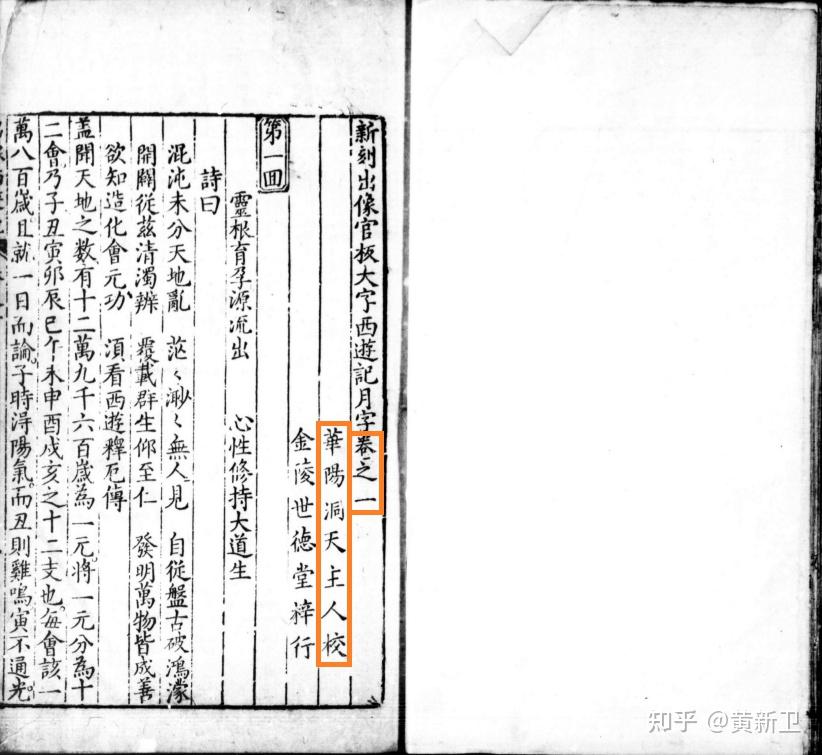 新刻出像官板大字西遊記月字卷之一
華陽洞天主人校
金陵世德堂梓行
第一回
靈根育孕源流出 心性修持大道生
詩曰
混沌未分天地亂 茫〻渺〻無人見 自從盤古破鴻濛
開闢從茲清濁辨 覆載群生仰至仁 發明萬物皆成善
欲知造化會元功 須看西遊釋厄傳
盖聞天地之数有十二萬九千六百歲為一元。將一元分為十
二會乃子丑寅卯辰巳午未申酉戌亥之十二支也。每會該一
萬八百歲且就一日而論。子時得陽氣。而丑則雞鳴。寅不通光。
知乎 @黄新卫